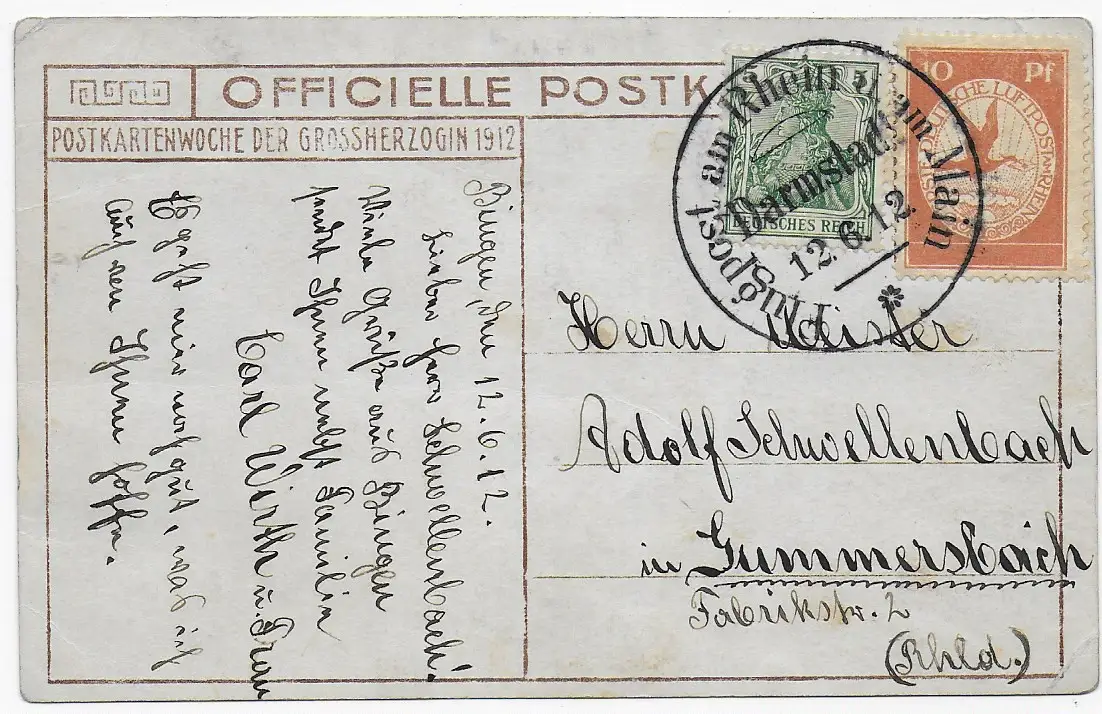 OFFICIELLE POSTK
POSTKARTENWOCHE DER GROSSHERZOGIN 1912
Bingen, den 12.6.12.
Lieber Herr Schwellenbach!
Viele Grüße aus Bingen
sendet Ihnen nebst Familie
Carl Wirth u. Frau
Es geht mir noch gut, was ich
auch von Ihnen hoffe.
DEUTSCHES REICH
10 Pf
Flugpost am Rhein u. am Main
Darmstadt
12.6.12
Herrn Meister
Adolf Schwellenbach
in Gummersbach
Fabrikstr. 2
(Rhld.)